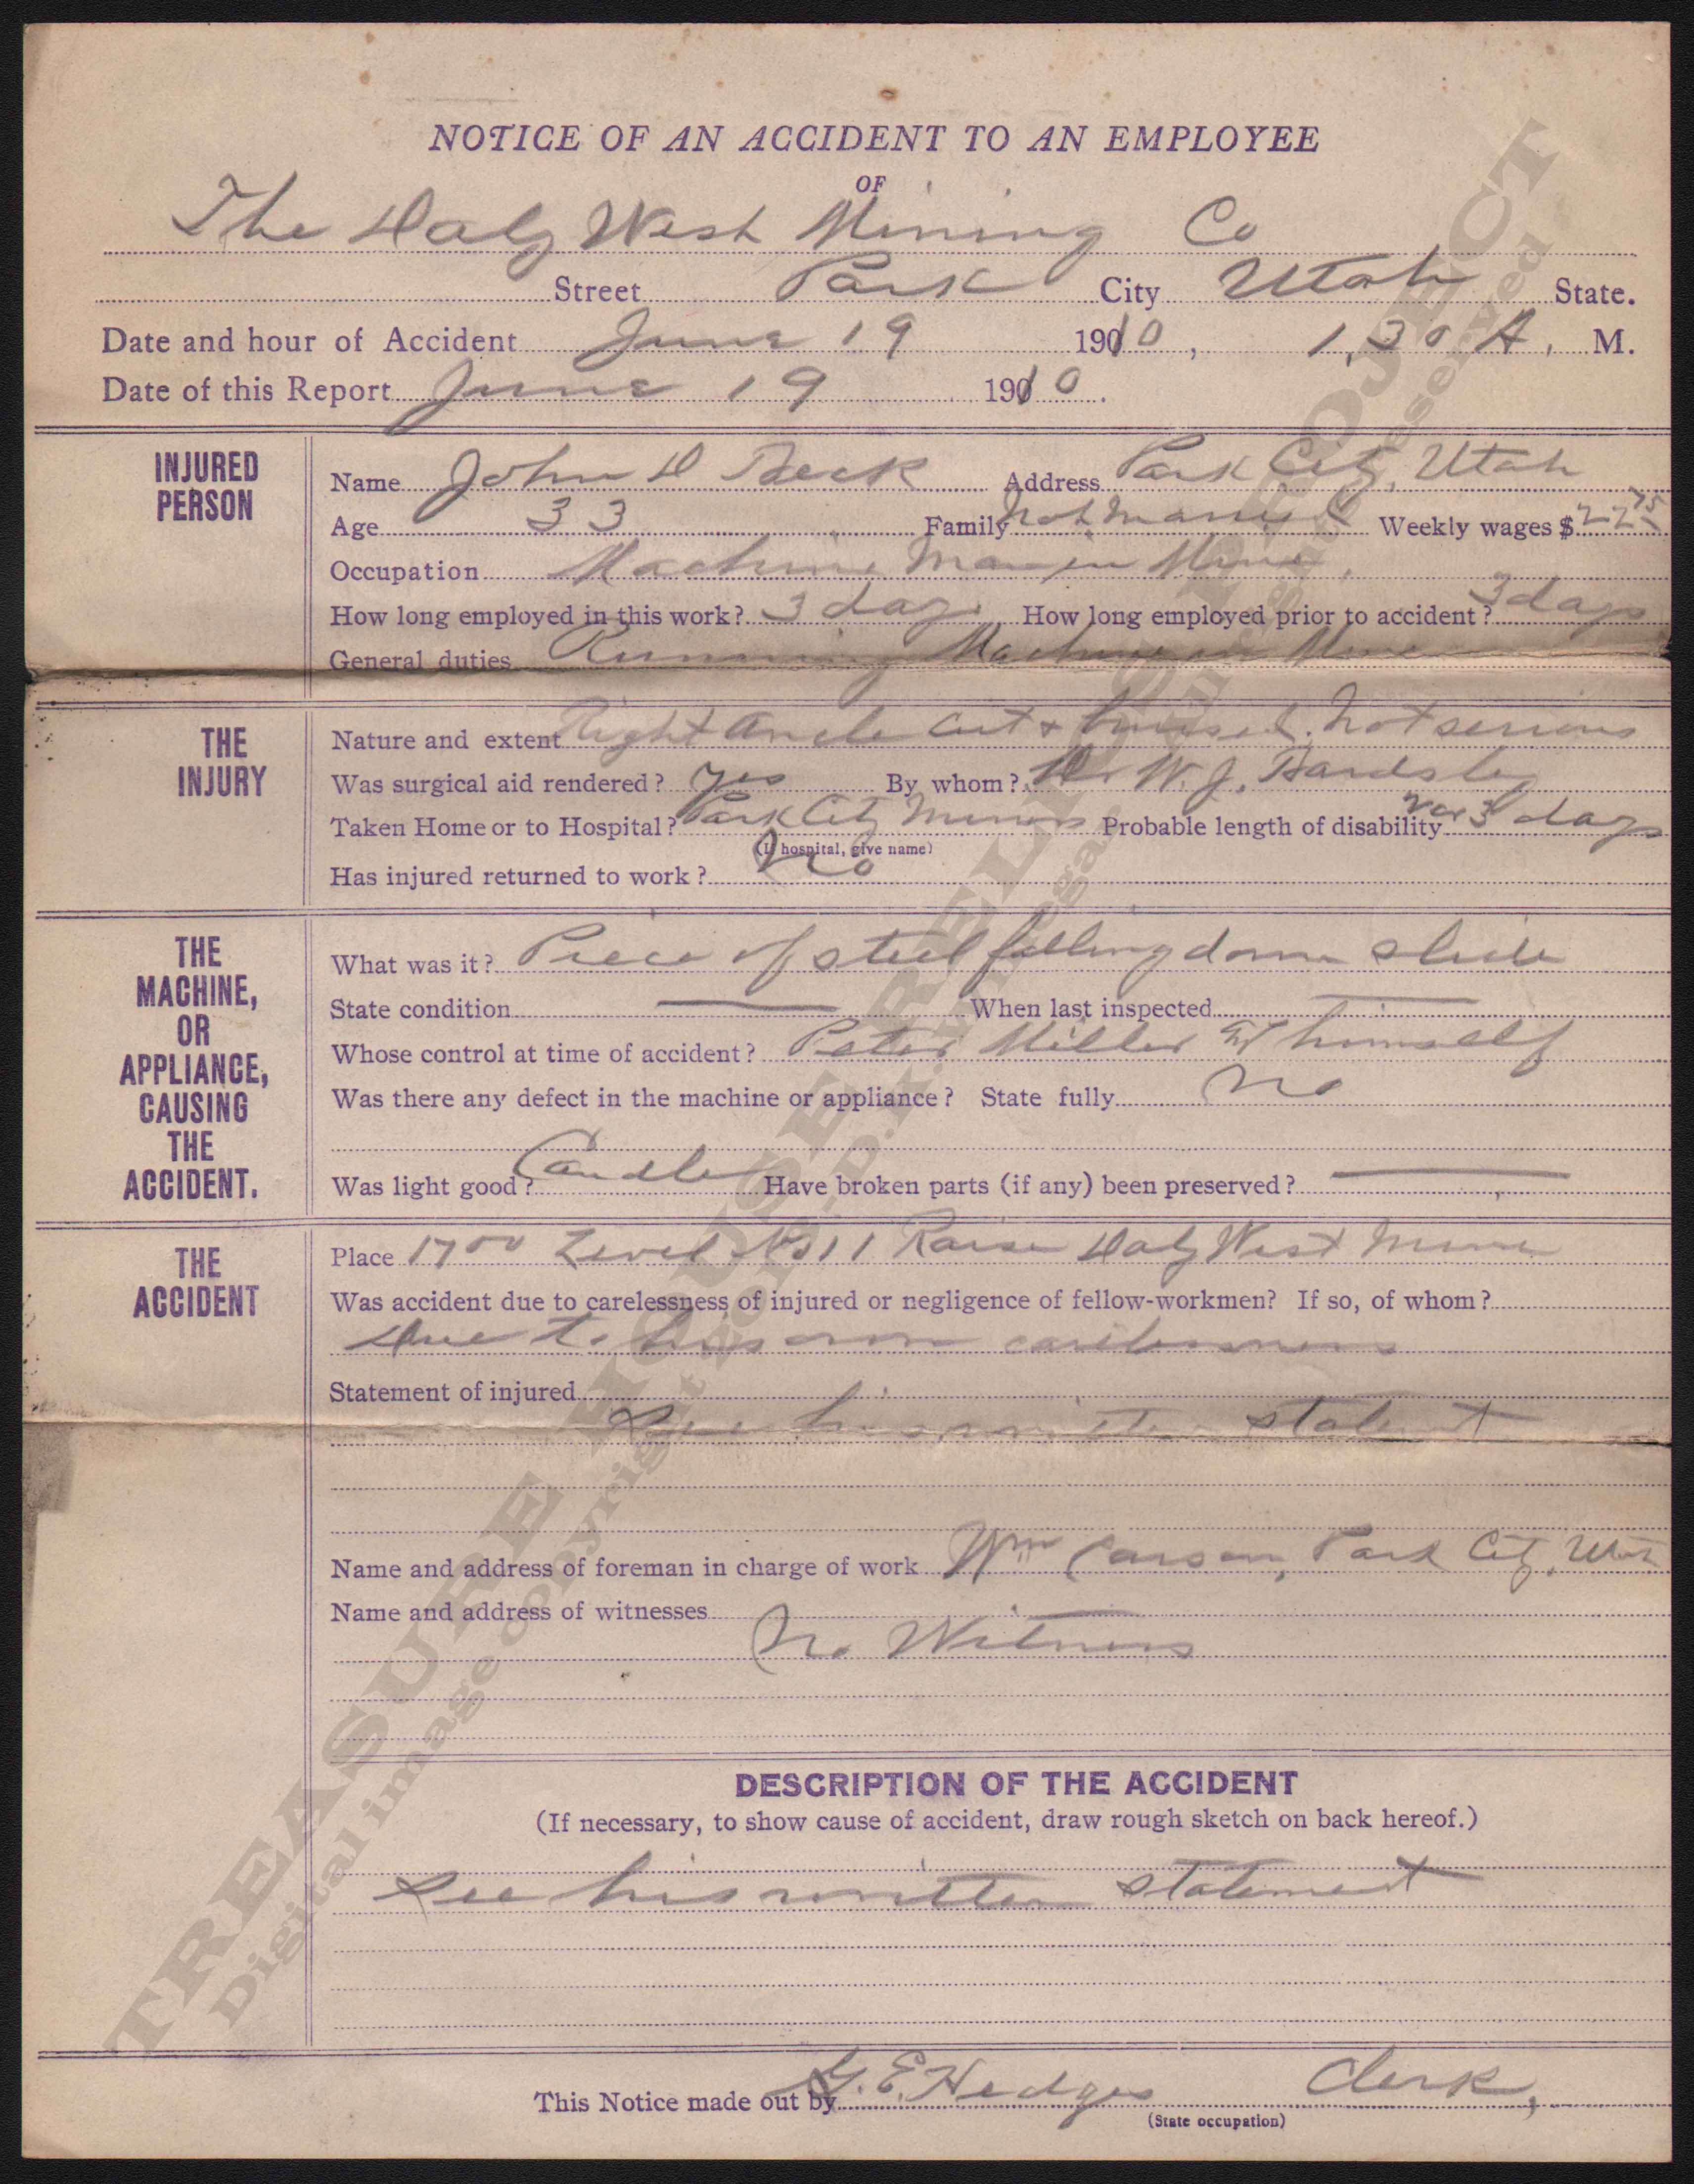 NOTICE OF AN ACCIDENT TO AN EMPLOYEE
OF
The Daly West Mining Co
Street Park City Utah State.
Date and hour of Accident June 19 1910, 1,30 A. M.
Date of this Report June 19 1910.
INJURED PERSON
Name John D Beck Address Park City, Utah
Age 33 Family Not Married Weekly wages $22 75
Occupation Machine Man in Mine,
How long employed in this work? 3 days How long employed prior to accident? 3 days
General duties Running Machine in Mine
THE INJURY
Nature and extent Right Ancle cut & bruised. Not serious
Was surgical aid rendered? Yes By whom? Dr W. J. Bardsley
Taken Home or to Hospital? Park City Miners Probable length of disability 2 or 3 days
(If hospital, give name)
Has injured returned to work? No
THE MACHINE, OR APPLIANCE, CAUSING THE ACCIDENT.
What was it? Piece of steel falling down slide
State condition — When last inspected —
Whose control at time of accident? Peter Miller & himself
Was there any defect in the machine or appliance? State fully No
Was light good? Candle Have broken parts (if any) been preserved? —
THE ACCIDENT
Place 1700 Level No 11 Raise Daly West Mine
Was accident due to carelessness of injured or negligence of fellow-workmen? If so, of whom?
Due to his own carelessness
Statement of injured
See his written statement
Name and address of foreman in charge of work Wm Carson, Park City, Utah
Name and address of witnesses
No Witness
DESCRIPTION OF THE ACCIDENT
(If necessary, to show cause of accident, draw rough sketch on back hereof.)
See his written statement
This Notice made out by G. E. Hedges Clerk,
(State occupation)
TREASURE HOUSE RELICS PROJECT
Digital image copyright